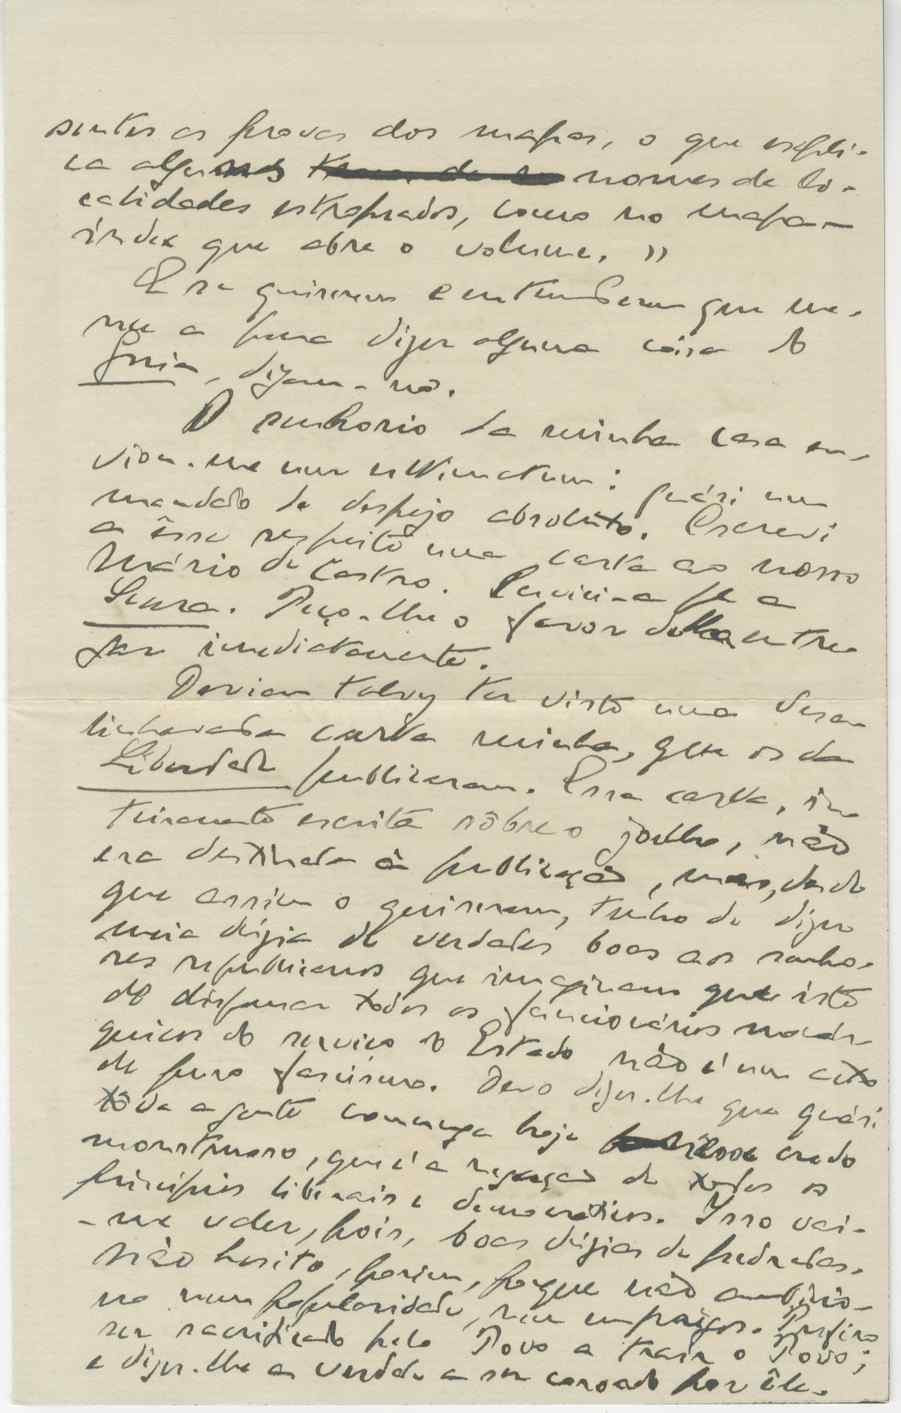 sentes as provas dos mapas, o que expli-
ca alguns nomes de lo-
calidades estropiados, como no mapa-
índex que abre o volume. »
E se quiserem e entenderem que me-
rece a pena dizer alguma coisa do
Guia, digam-no.
O senhorio da minha casa en-
viou-me um ultimatum: quási um
mandado de despejo absoluto. Escrevi
a êsse respeito uma carta ao nosso
Mário de Castro. Enviei-a pª a
Seara. Peço-lhe o favor de lha entre-
gar imediatamente.
Deviam talvez ter visto uma desa-
linhavada carta minha, que os da
Liberdade publicaram. Essa carta, in-
teiramente escrita sôbre o joelho, não
era destinada à publicação, mas, desde
que assim o quiseram, tenho de dizer
meia dúzia de verdades boas aos senho-
res republicanos que imaginam que isto
de dispensar todos os funcionários monár-
quicos do serviço do Estado não é um acto
de puro fascismo. Devo dizer-lhe que quási
tôda a gente comunga hoje êsse credo
monstruoso, que é a negação de todos os
princípios liberais e democráticos. Isso vai-
-me valer, pois, boas dúzias de pedradas.
Não hesito, porém, porque não ambicio-
no nem popularidade, nem empregos. Prefiro
ser sacrificado pelo Povo a trair o Povo;
e dizer-lhe a verdade a ser coroado por êle.